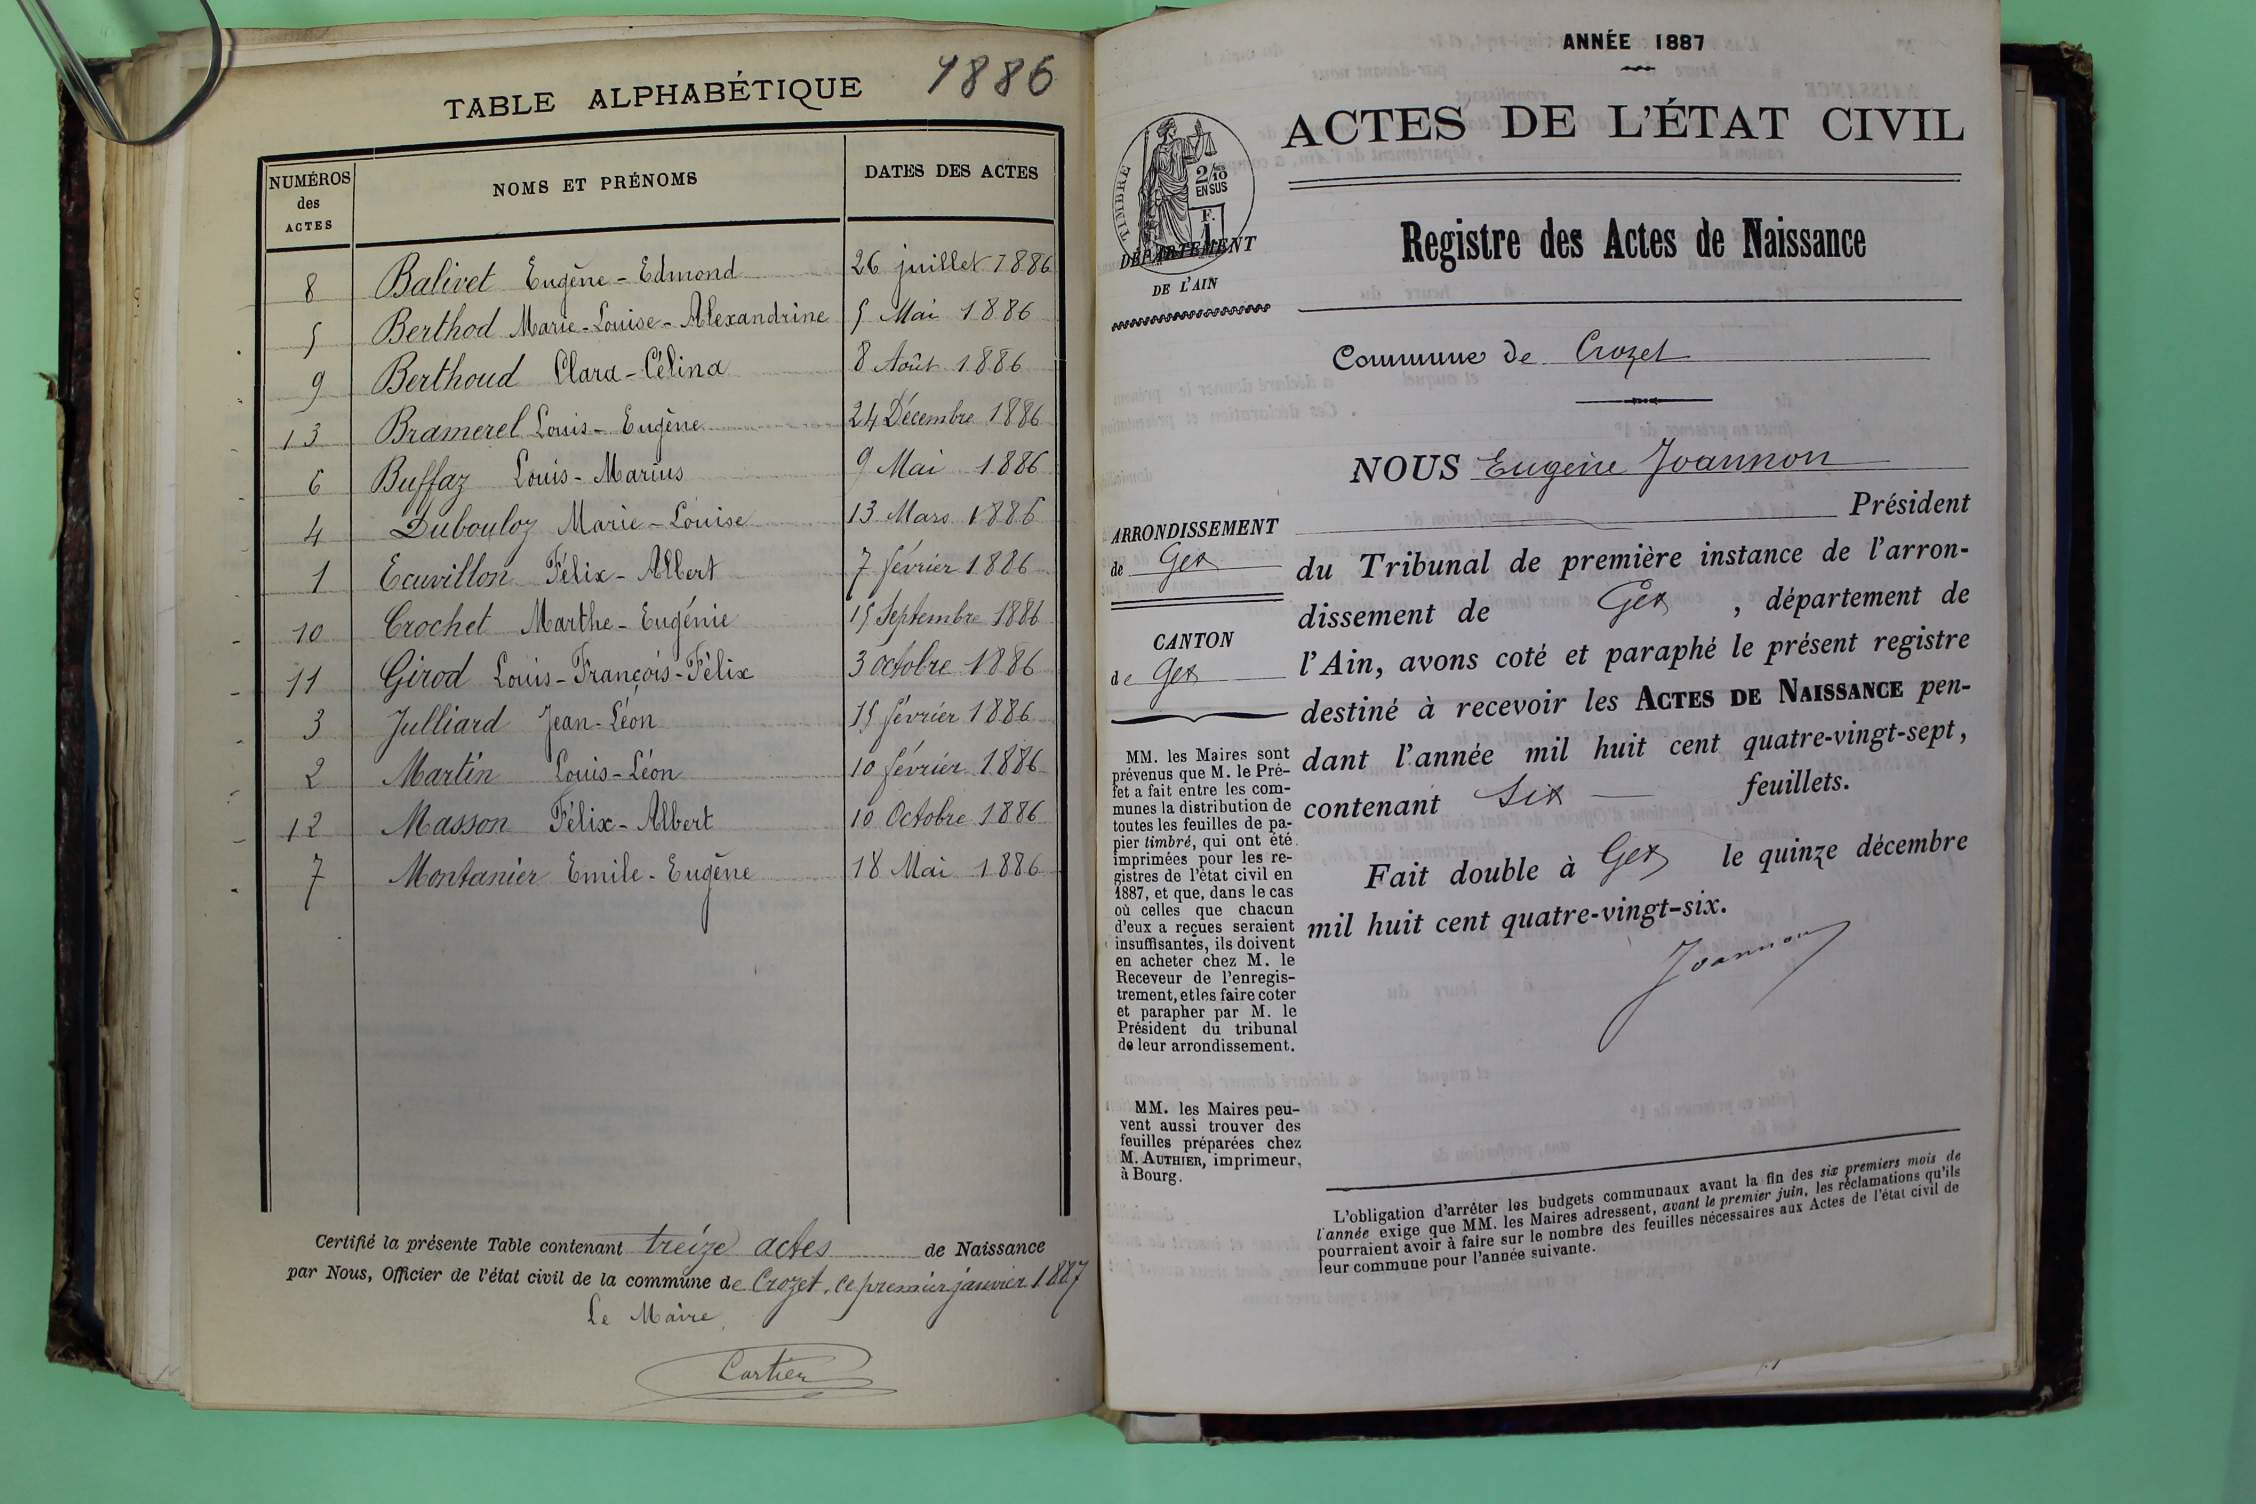 TABLE ALPHABÉTIQUE 1886
NUMÉROS des ACTES NOMS ET PRÉNOMS DATES DES ACTES
8 Balivet Eugène-Edmond 26 juillet 1886
5 Berthod Marie-Louise-Alexandrine 5 Mai 1886
9 Berthoud Clara-Célina 8 Août 1886
13 Bramerel Louis-Eugène 24 Décembre 1886
6 Buffaz Louis-Marius 9 Mai 1886
4 Dubouloz Marie-Louise 13 Mars 1886
1 Ecuvillon Félix-Albert 7 février 1886
10 Crochet Marthe-Eugénie 15 Septembre 1886
11 Girod Louis-François-Félix 3 octobre 1886
3 Julliard Jean-Léon 15 février 1886
2 Martin Louis-Léon 10 février 1886
12 Masson Félix-Albert 10 Octobre 1886
7 Montanier Emile-Eugène 18 Mai 1886
Certifié la présente Table contenant treize actes de Naissance
par Nous, Officier de l'état civil de la commune de Crozet, ce premier janvier 1887
Le Maire,
Cartier
ANNÉE 1887
ACTES DE L'ÉTAT CIVIL
TIMBRE
2/10
EN SUS
F.
1
DÉPARTEMENT
DE L'AIN
Registre des Actes de Naissance
Commune de Crozet
ARRONDISSEMENT
de Gex
CANTON
de Gex
MM. les Maires sont
prévenus que M. le Pré-
fet a fait entre les com-
munes la distribution de
toutes les feuilles de pa-
pier timbré, qui ont été
imprimées pour les re-
gistres de l'état civil en
1887, et que, dans le cas
où celles que chacun
d'eux a reçues seraient
insuffisantes, ils doivent
en acheter chez M. le
Receveur de l'enregis-
trement, et les faire coter
et parapher par M. le
Président du tribunal
de leur arrondissement.
MM. les Maires peu-
vent aussi trouver des
feuilles préparées chez
M. AUTHIER, imprimeur,
à Bourg.
NOUS Eugène Joannon
Président
du Tribunal de première instance de l'arron-
dissement de Gex, département de
l'Ain, avons coté et paraphé le présent registre
destiné à recevoir les ACTES DE NAISSANCE pen-
dant l'année mil huit cent quatre-vingt-sept,
contenant Six feuillets.
Fait double à Gex le quinze décembre
mil huit cent quatre-vingt-six.
Joannon
L'obligation d'arrêter les budgets communaux avant la fin des six premiers mois de
l'année exige que MM. les Maires adressent, avant le premier juin, les réclamations qu'ils
pourraient avoir à faire sur le nombre des feuilles nécessaires aux Actes de l'état civil de
leur commune pour l'année suivante.